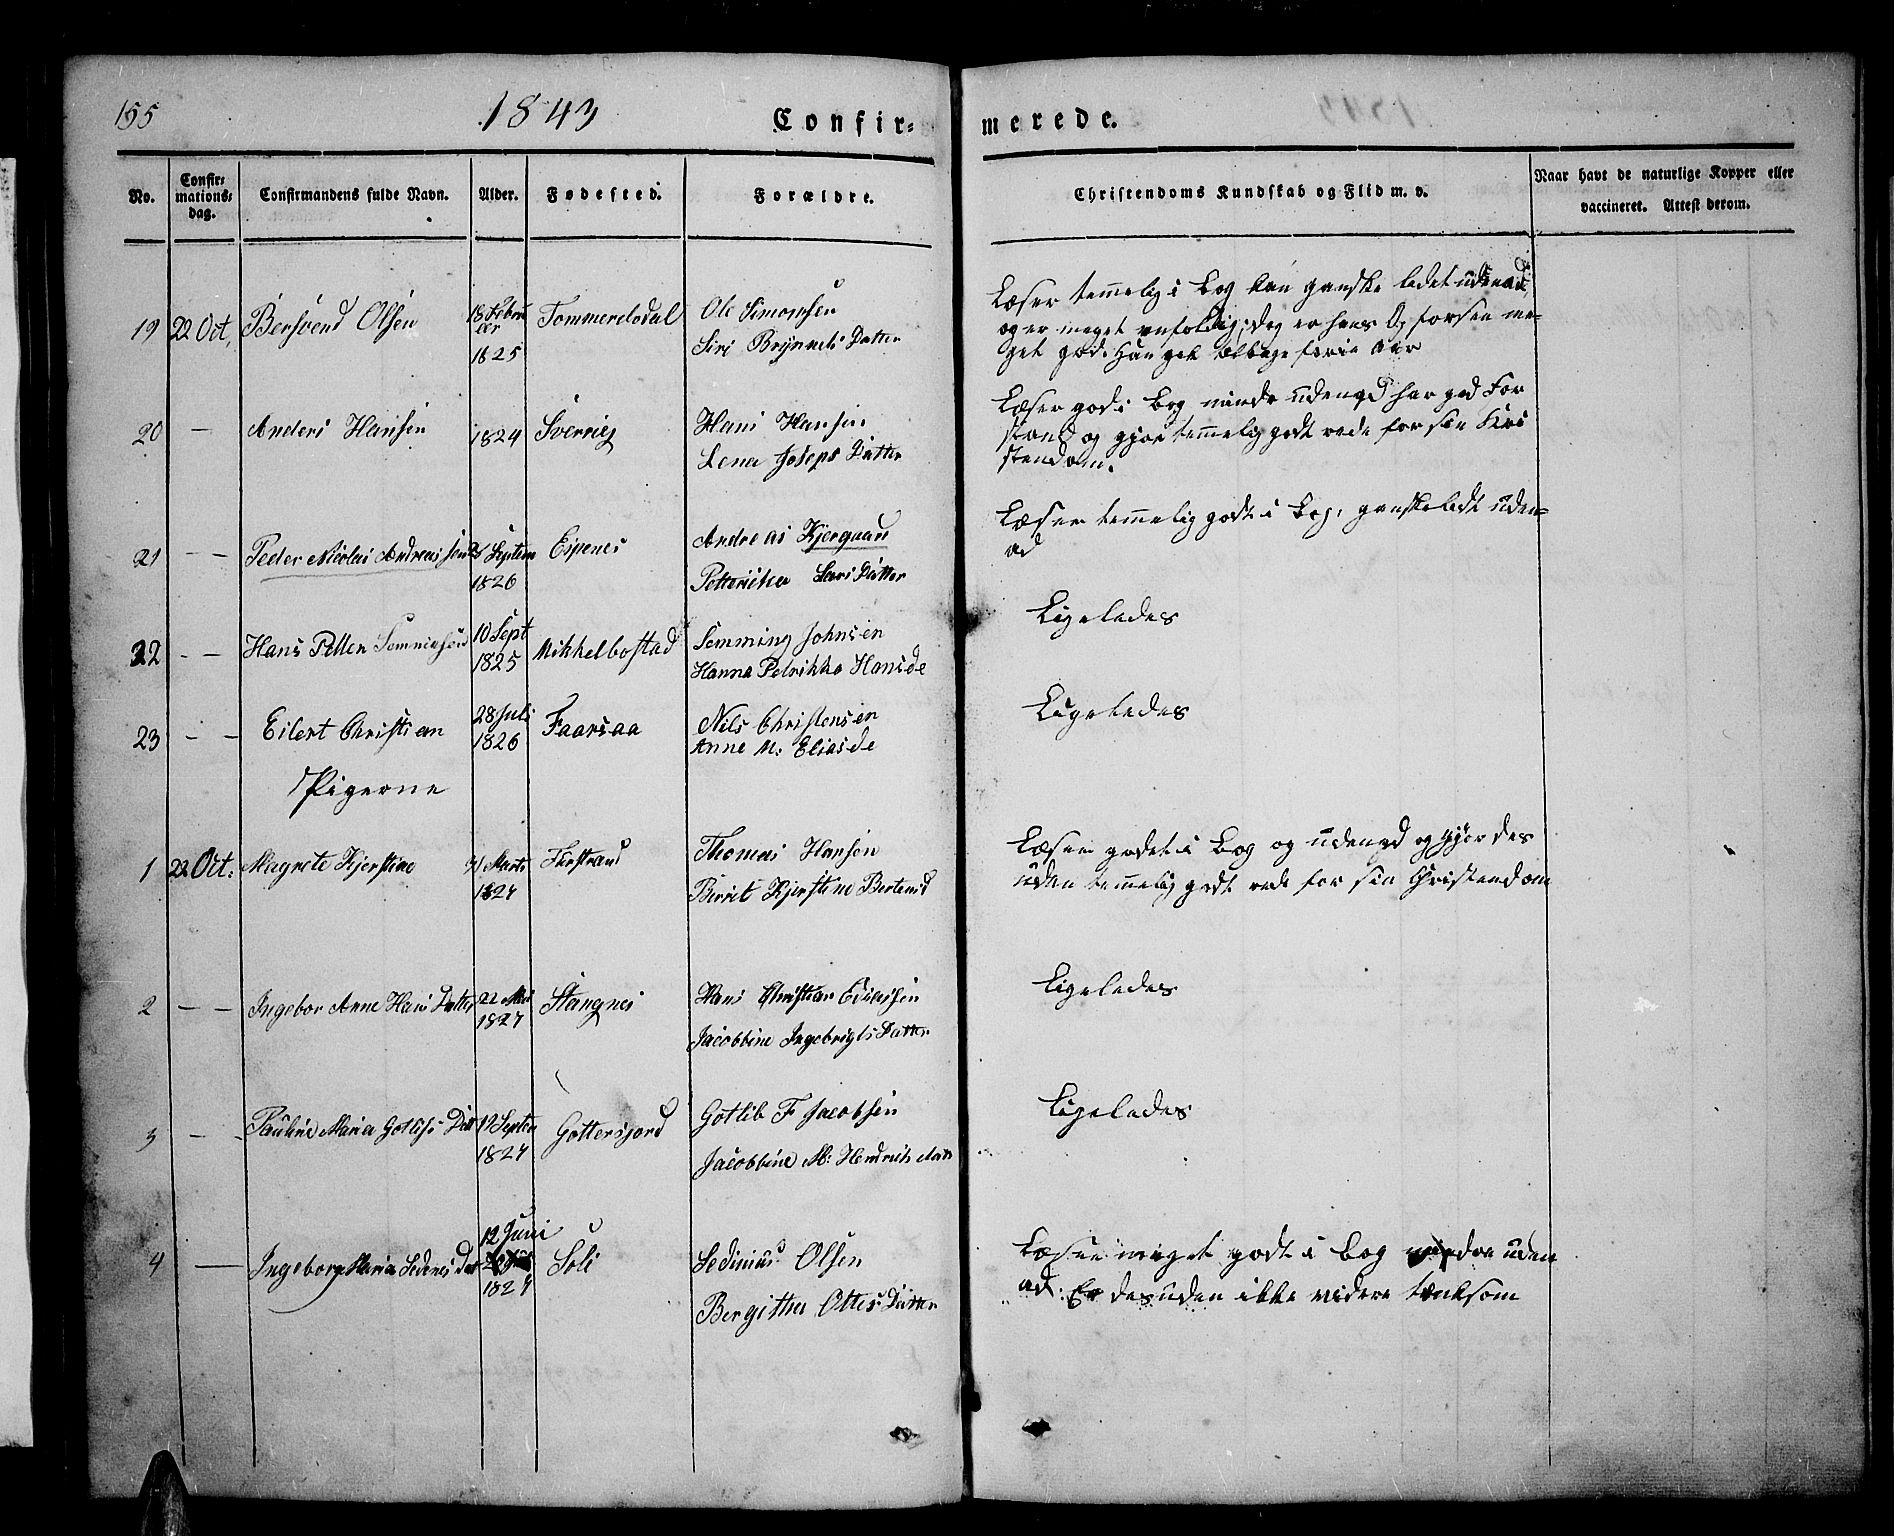 155
1843
Confir-
merede.
No.
Confir-
mations-
dag.
Confirmandens fulde Navn.
Alder.
Fødested.
Forældre.
Christendoms Kundskab og Flid m. v.
Naar havt de naturlige Kopper eller
vaccineret. Attest derom.
19 22 Oct, Bersvend Olsen 18 Febru
ar
1825
Ole Simonsen
Siri Brynnels Datter
Læser temmelig i Bog kan ganske lidet udenad,
og er meget enfoldig; dog er hans Opførsel me-
get god. Han gik tilbage forrie Aar
20 — Anders Hansen 1824 Sverrig
Hans Hansen
Lena Joseps Datter
Læser god i Bog mindre udenad har god For
stand og gjør temmelig godt rede for sin Kri
stendom.
21 — — Peder Nicolai Andreassen Septem
1826
Espenes
Andreas Kjergaard
Petterikka Lars Datter
Læser temmelig godt i Bog, ganske lidt uden-
ad
22 — — Hans Petter Semmingsen 10 Sept
1825
Mikkelbostad
Semming Johnsen
Hanna Petrikka Hansde
Ligeledes
23 — — Eilert Christian 28 Juli
1826
Faarsaa
Nils Christensen
Anne M: Eliasde
Ligeledes
Pigerne
1 22 Oct: Magrete Kjerstine Marts
1827
Thomas Hansen
Berrit Kjerstine Bertensd
Læser godet i Bog og udenad og gjør des
uden temmelig godt rede for sin Christendom
2 — — Ingebor Anne Hans Datter 22 Mai
1827
Stangnes
Hans Christian
Jacobbine Ingebrigts Datter
Ligeledes
3 — — Pauline Maria Gotlibs Datt 19 Septem
1827
Gottersjord
Gotlib F Jacobsen
Jacobbine M: Hendriks datt
Ligeledes
4 — Ingeborg Maria Sedenis Dat 12 Juni
1827
Soli
Sedinius Olsen
Bergitha Ottes Datter
Læser meget godt i Bog mindre uden
ad. Er desuden ikke videre tænksom